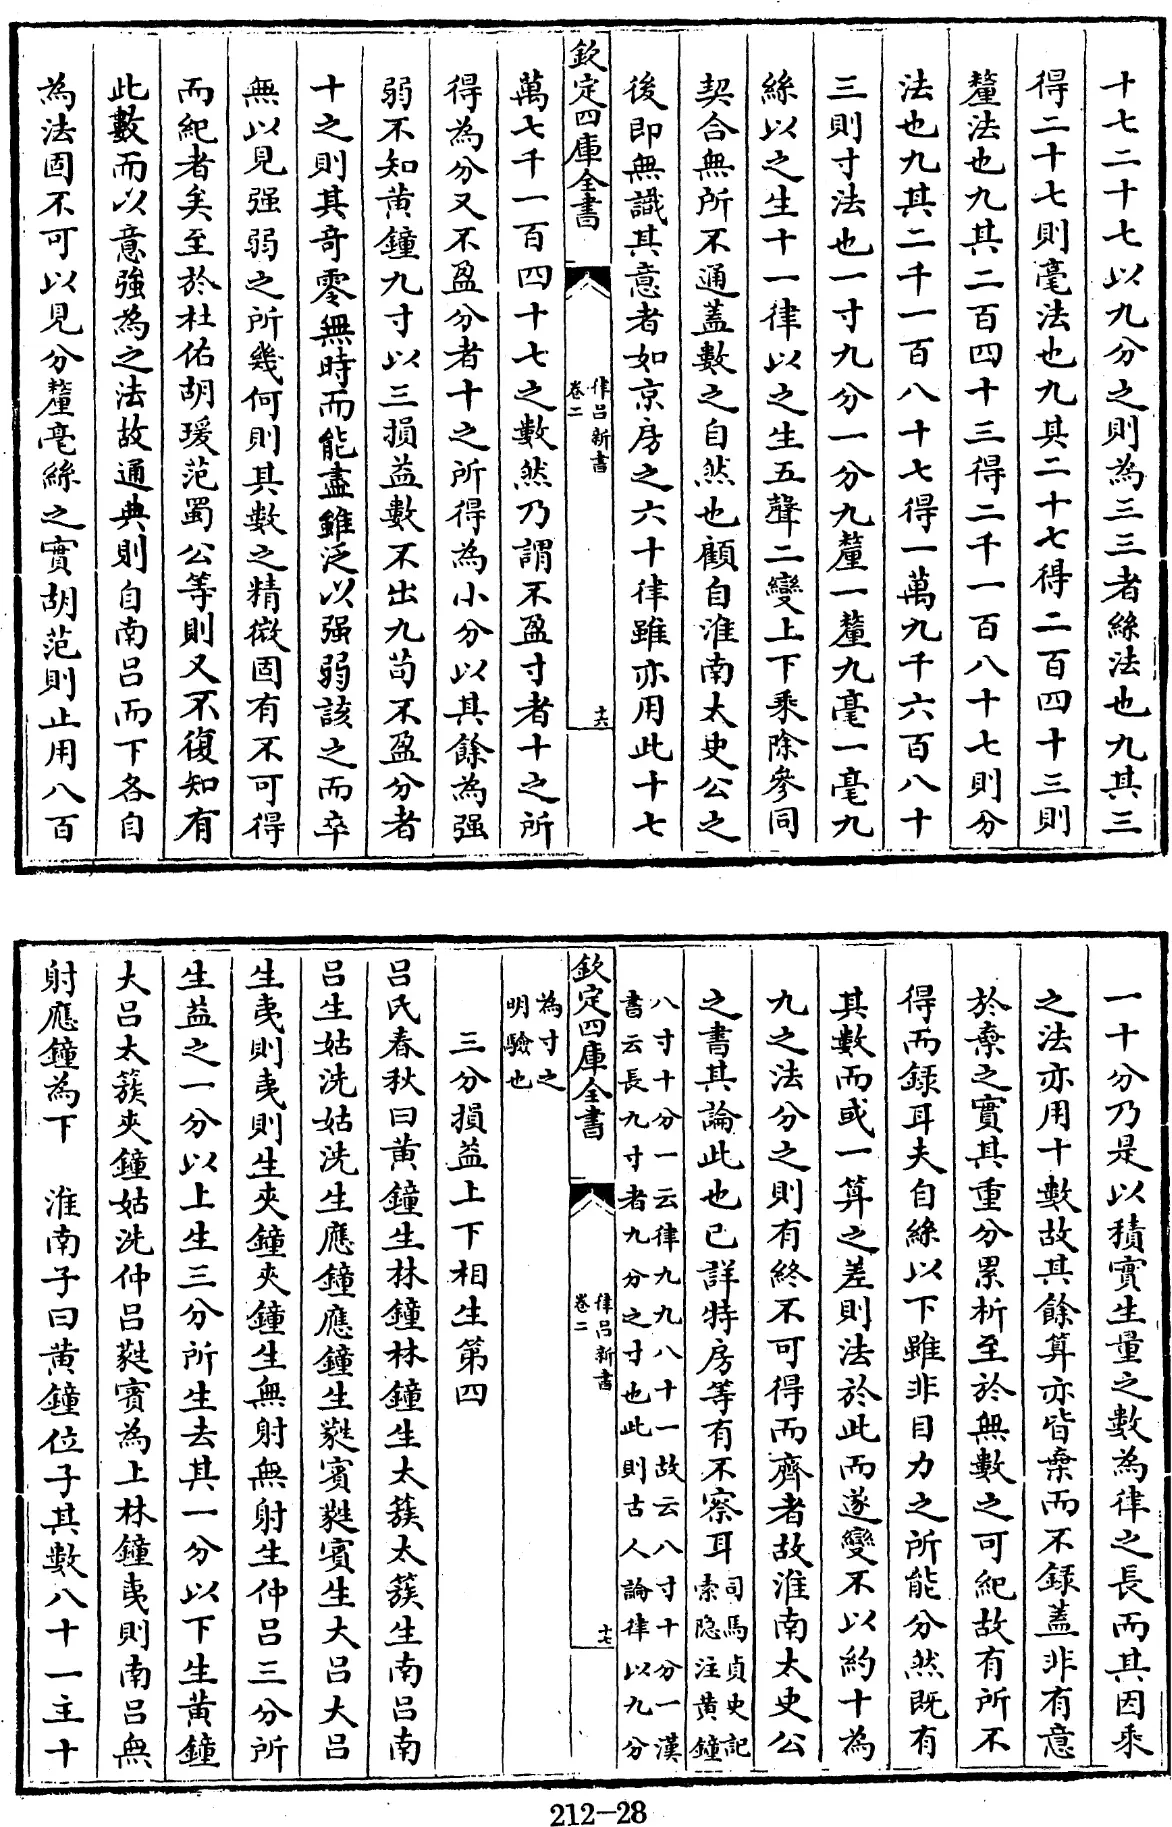 十七二十七以九分之則為三三者絲法也九其三
得二十七則毫法也九其二十七得二百四十三則
釐法也九其二百四十三得二千一百八十七則分
法也九其二千一百八十七得一萬九千六百八十
三則寸法也一寸九分一分九釐一釐九毫一毫九
絲以之生十一律以之生五聲二變上下乘除參同
契合無所不通蓋數之自然也顧自淮南太史公之
後即無識其意者如京房之六十律雖亦用此十七
欽定四庫全書
律呂新書
卷二
十六
萬七千一百四十七之數然乃謂不盈寸者十之所
得為分又不盈分者十之所得為小分以其餘為强
弱不知黄鐘九寸以三損益數不出九苟不盈分者
十之則其奇零無時而能盡雖泛以强弱該之而卒
無以見强弱之所幾何則其數之精微固有不可得
而紀者矣至於杜佑胡瑗范蜀公等則又不復知有
此數而以意强為之法故通典則自南呂而下各自
為法固不可以見分釐毫絲之實胡范則止用八百
一十分乃是以積實生量之數為律之長而其因乘
之法亦用十數故其餘算亦皆棄而不録蓋非有意
於棄之實其重分累析至於無數之可紀故有所不
得而録耳夫自絲以下雖非目力之所能分然既有
其數而或一算之差則法於此而遂變不以約十為
九之法分之則有終不可得而齊者故淮南太史公
之書其論此也已詳特房等有不察耳司馬貞史記
索隐注黄鐘
八寸十分一云律九九八十一故云八寸十分一漢
書云長九寸者九分之寸也此則古人論律以九分
欽定四庫全書
律呂新書
卷二
十七
為寸之
明驗也
三分損益上下相生第四
呂氏春秋曰黄鐘生林鐘林鐘生太蔟太蔟生南呂南
呂生姑洗姑洗生應鐘應鐘生蕤賓蕤賓生大呂大呂
生夷則夷則生夾鐘夾鐘生無射無射生仲呂三分所
生益之一分以上生三分所生去其一分以下生黄鐘
大呂太簇夾鐘姑洗仲呂蕤賓為上林鐘夷則南呂無
射應鐘為下　淮南子曰黄鐘位子其數八十一主十
212-28